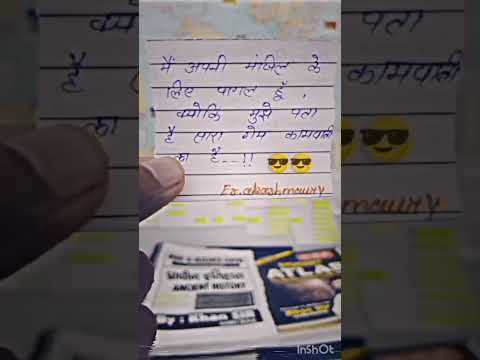 मैं अपनी मंज़िल के
लिए पागल हूँ ,
क्योकि मुझे पता
है सारा गेम कामयाबी
का है...!! 😎😎
Er.akashmourry
प्राचीन इतिहास
ANCIENT HISTORY
By : Khan SIR
ATLAS
InShOt